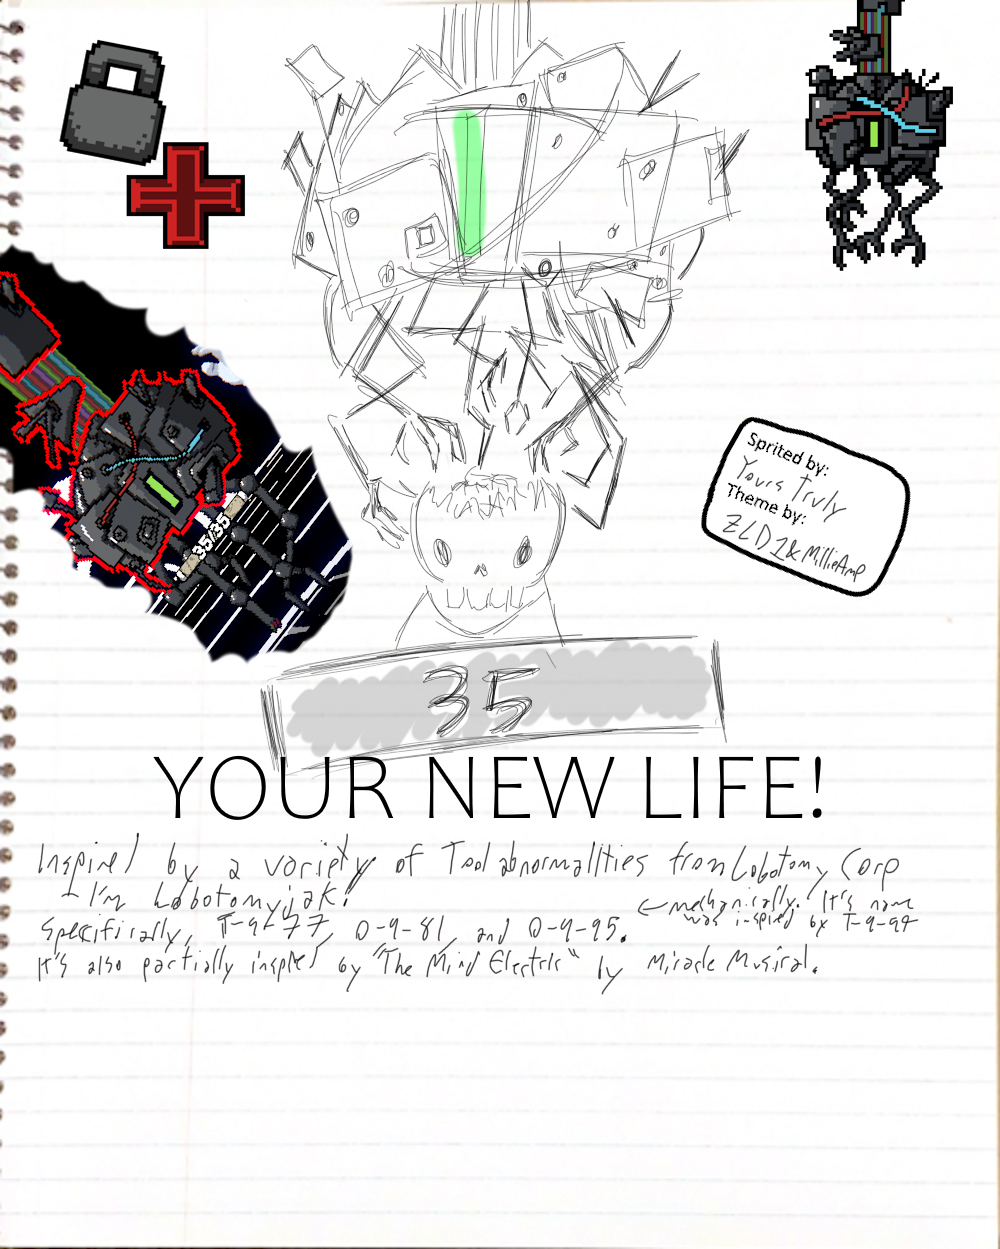 35/35
Sprited by:
Yours Truly
Theme by:
ZLD1 & MillieAmp
35
YOUR NEW LIFE!
Inspired by a variety of Tool abnormallities from Lobotomy Corp
- I'm Lobotomyjak!
Specifically, T-9-77, O-9-81, and O-9-95.
← mechanically. It's name
was inspired by T-9-94
It's also partially inspired by "The Mind Electric" by Miracle Musical.